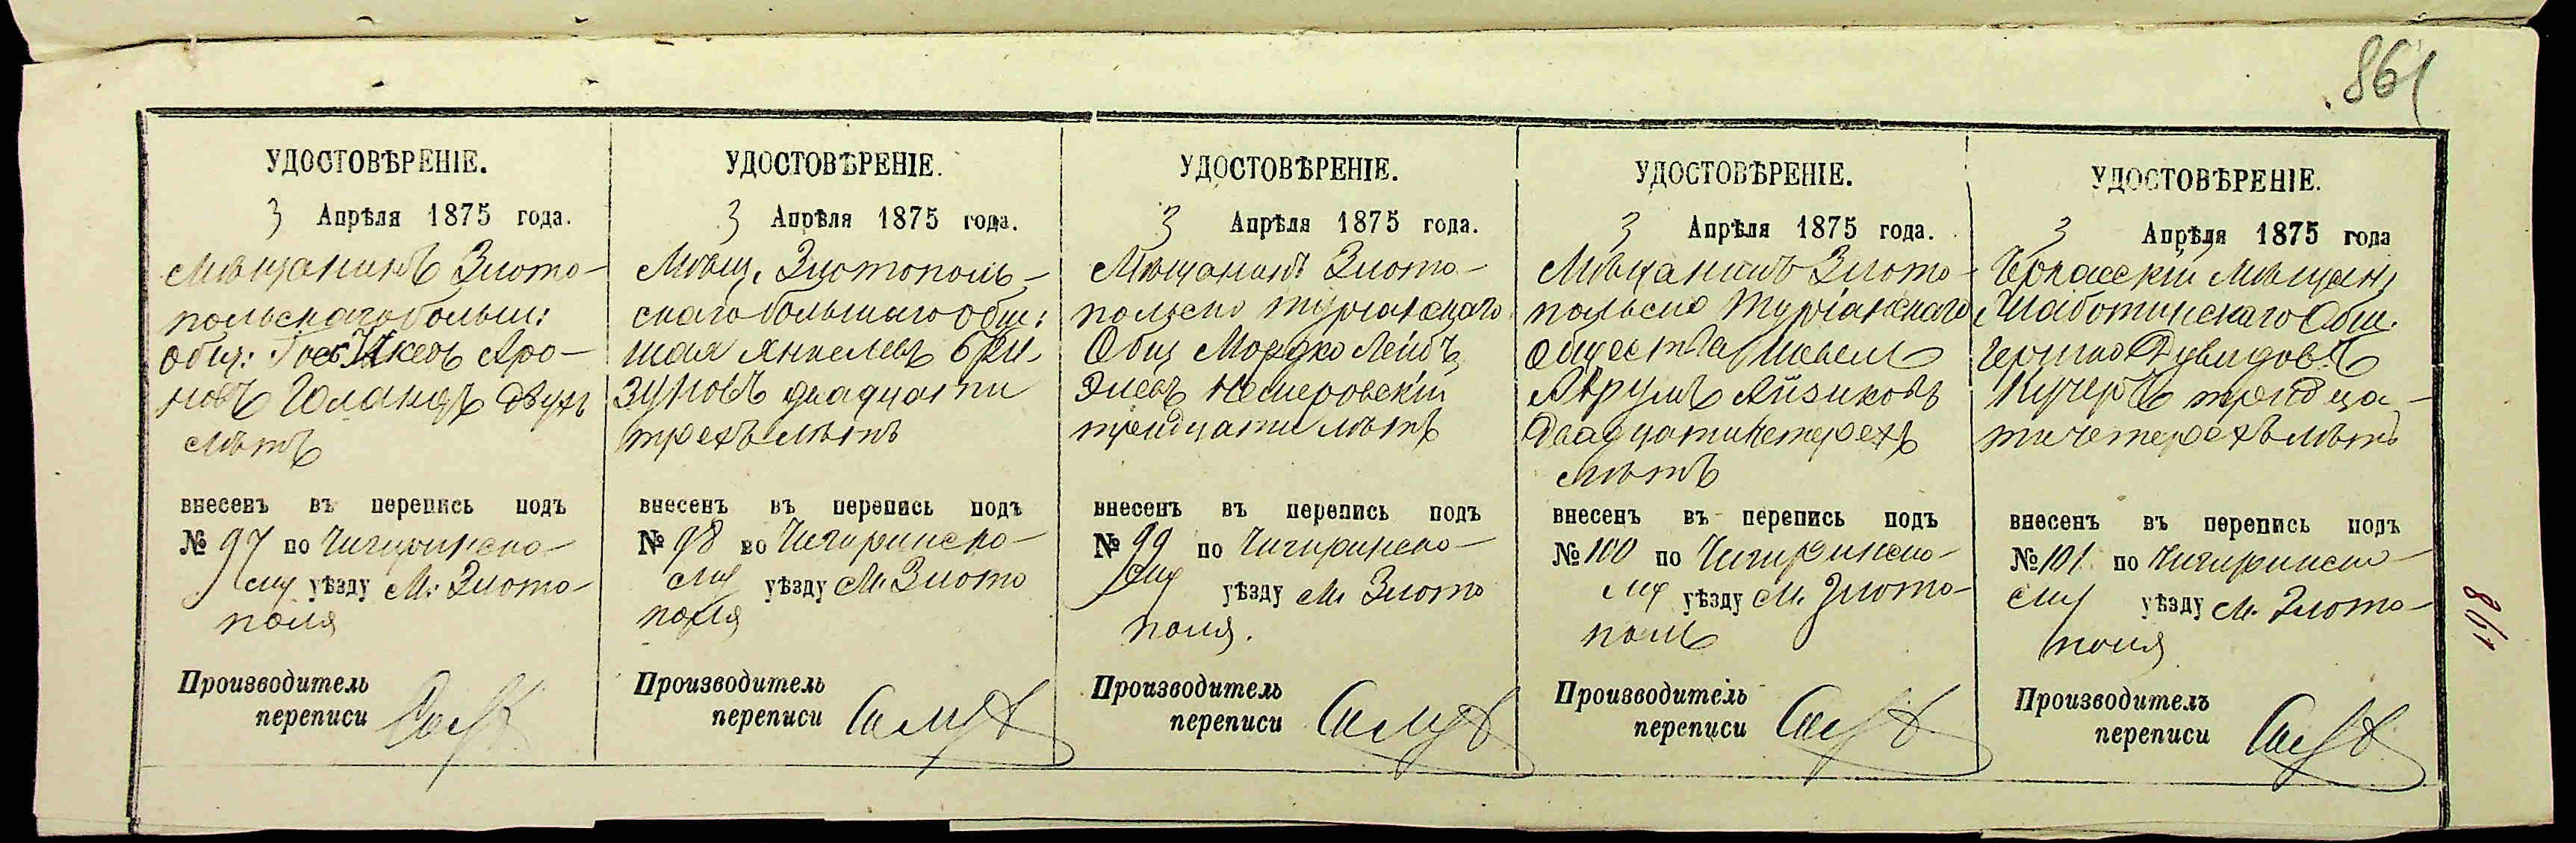 861
УДОСТОВѢРЕНІЕ.
3 Апрѣля 1875 года.
Мѣщанинъ Злото-
польскаго больш:
общ: Аро-
новъ Голандъ двухъ
лѣтъ
внесенъ въ перепись подъ
№ 97 по Чигиринско-
му уѣзду М: Злото-
поля
Производитель
переписи
УДОСТОВѢРЕНІЕ.
3 Апрѣля 1875 года.
Мѣщ. Злотополь-
скаго большаго общ:
Янкелевъ
двадцати
трехъ лѣтъ
внесенъ въ перепись подъ
№ 98 по Чигиринско-
му уѣзду М. Злото
поля
Производитель
переписи
УДОСТОВѢРЕНІЕ.
3 Апрѣля 1875 года.
Мѣщанинъ Злото-
польско туріанскаго
Общ Мордко Лейбъ
Немеровскій
тридцати лѣтъ
внесенъ въ перепись подъ
№ 99 по Чигиринско-
му уѣзду М. Злото
поля.
Производитель
переписи
УДОСТОВѢРЕНІЕ.
3 Апрѣля 1875 года.
Мѣщанинъ Злото-
польско Туріанскаго
Общества
Аврумъ Айзиковъ
двадцати четырехъ
лѣтъ
внесенъ въ перепись подъ
№ 100 по Чигиринско-
му уѣзду М. Злото-
поль
Производитель
переписи
УДОСТОВѢРЕНІЕ.
3 Апрѣля 1875 года
Черкасскій Мѣщан,
Жаботинскаго Общ.
Гершко Дувидовъ
Кучеръ тридца-
ти четерехъ лѣтъ
внесенъ въ перепись подъ
№ 101 по Чигиринско-
му уѣзду М. Злото-
поля
Производитель
переписи
861